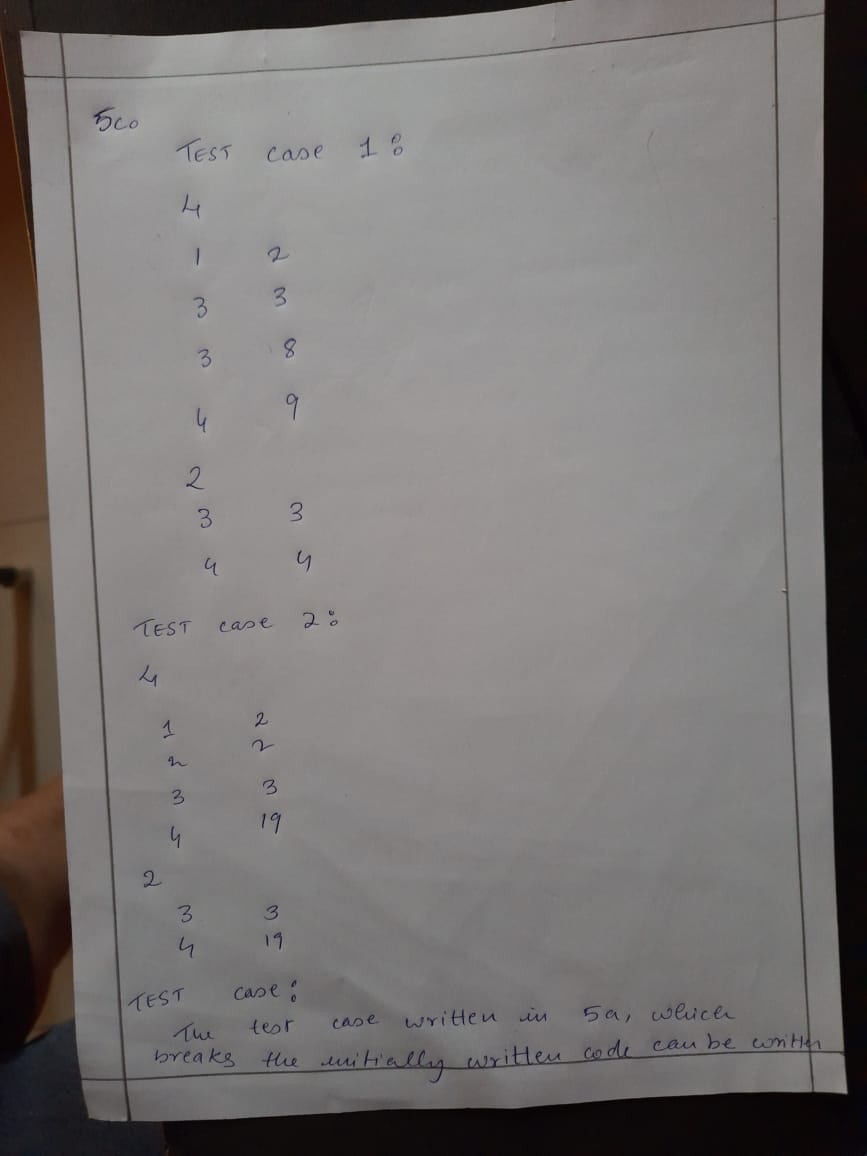 5c.
TEST case 1:
4
1 2
3 3
3 8
4 9
2
3 3
4 4
TEST case 2:
4
1 2
2 2
3 3
4 19
2
3 3
4 19
TEST case:
The test case written in 5a, which
breaks the initially written code can be written